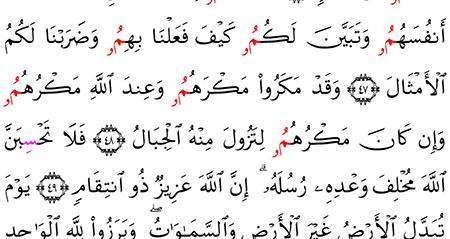 أَنفُسَهُمُۥ وَتَبَيَّنَ لَكُمُۥ كَيْفَ فَعَلْنَا بِهِمُۥ وَضَرَبْنَا لَكُمُ
ٱلْأَمْثَالَ ٤٧ وَقَدْ مَكَرُوا۟ مَكْرَهُمُۥ وَعِندَ ٱللَّهِ مَكْرُهُمُۥ
وَإِن كَانَ مَكْرُهُمُۥ لِتَزُولَ مِنْهُ ٱلْجِبَالُ ٤٨ فَلَا تَحْسِبَنَّ
ٱللَّهَ مُخْلِفَ وَعْدِهِۦ رُسُلَهُۥۗ إِنَّ ٱللَّهَ عَزِيزٌ ذُو ٱنتِقَامٍ ٤٩ يَوْمَ
تُبَدَّلُ ٱلْأَرْضُ غَيْرَ ٱلْأَرْضِ وَٱلسَّمَٰوَٰتُۖ وَبَرَزُوا۟ لِلَّهِ ٱلْوَٰحِدِ